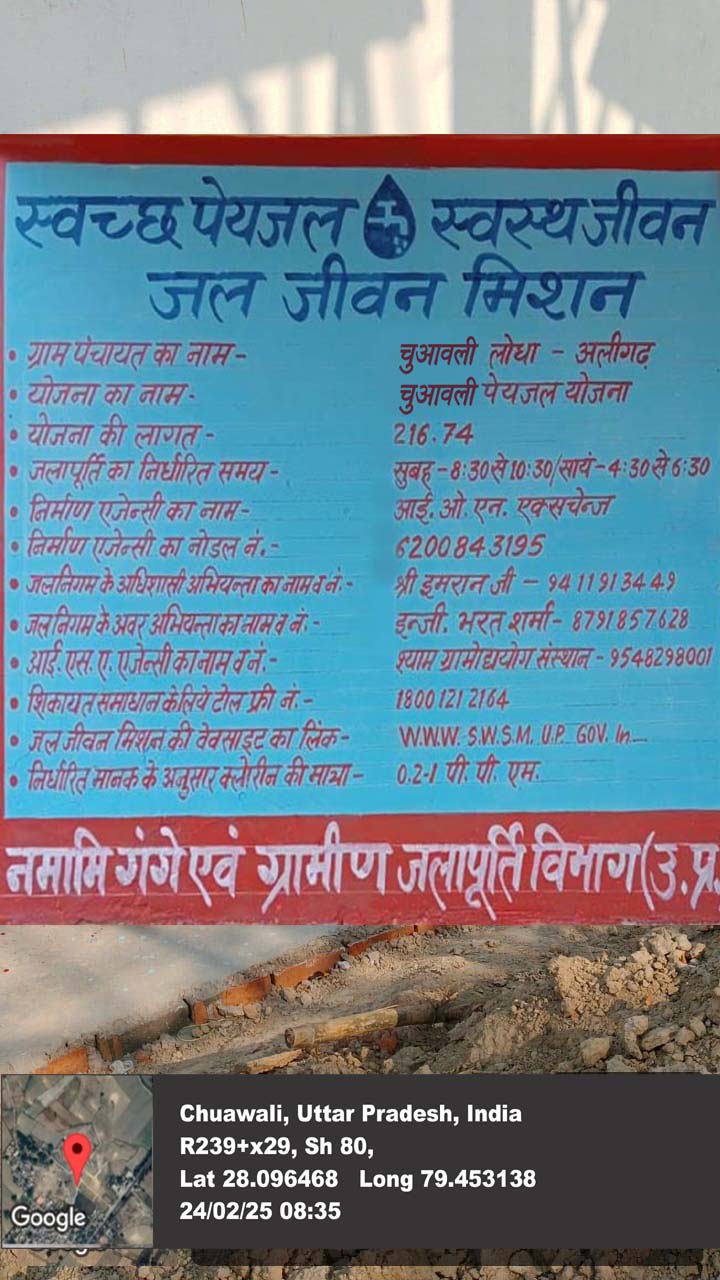 स्वच्छ पेयजल स्वस्थ जीवन
जल जीवन मिशन
• ग्राम पंचायत का नाम - चुआवली लोधा - अलीगढ़
• योजना का नाम - चुआवली पेयजल योजना
• योजना की लागत - 216.74
• जलापूर्ति का निर्धारित समय - सुबह - 8:30 से 10:30/सायं - 4:30 से 6:30
• निर्माण एजेन्सी का नाम - आई. ओ. एन. एक्सचेन्ज
• निर्माण एजेन्सी का नोडल नं. - 6200843195
• जलनिगम के अधिशासी अभियन्ता का नाम व नं. - श्री इमरान जी - 9411913449
• जलनिगम के अवर अभियन्ता का नाम व नं. - इन्जी. भरत शर्मा - 8791857628
• आई. एस. ए. एजेन्सी का नाम व नं. - श्याम ग्रामोद्ययोग संस्थान - 9548298001
• शिकायत समाधान के लिये टोल फ्री नं. - 1800 121 2164
• जल जीवन मिशन की वेवसाइट का लिंक - W.W.W. S.W.S.M. U.P. GOV. In
• निर्धारित मानक के अनुसार क्लोरीन की मात्रा - 0.2-1 पी. पी. एम.
नमामि गंगे एवं ग्रामीण जलापूर्ति विभाग (उ.प्र.
Chuawali, Uttar Pradesh, India
R239+x29, Sh 80,
Lat 28.096468 Long 79.453138
24/02/25 08:35
Google